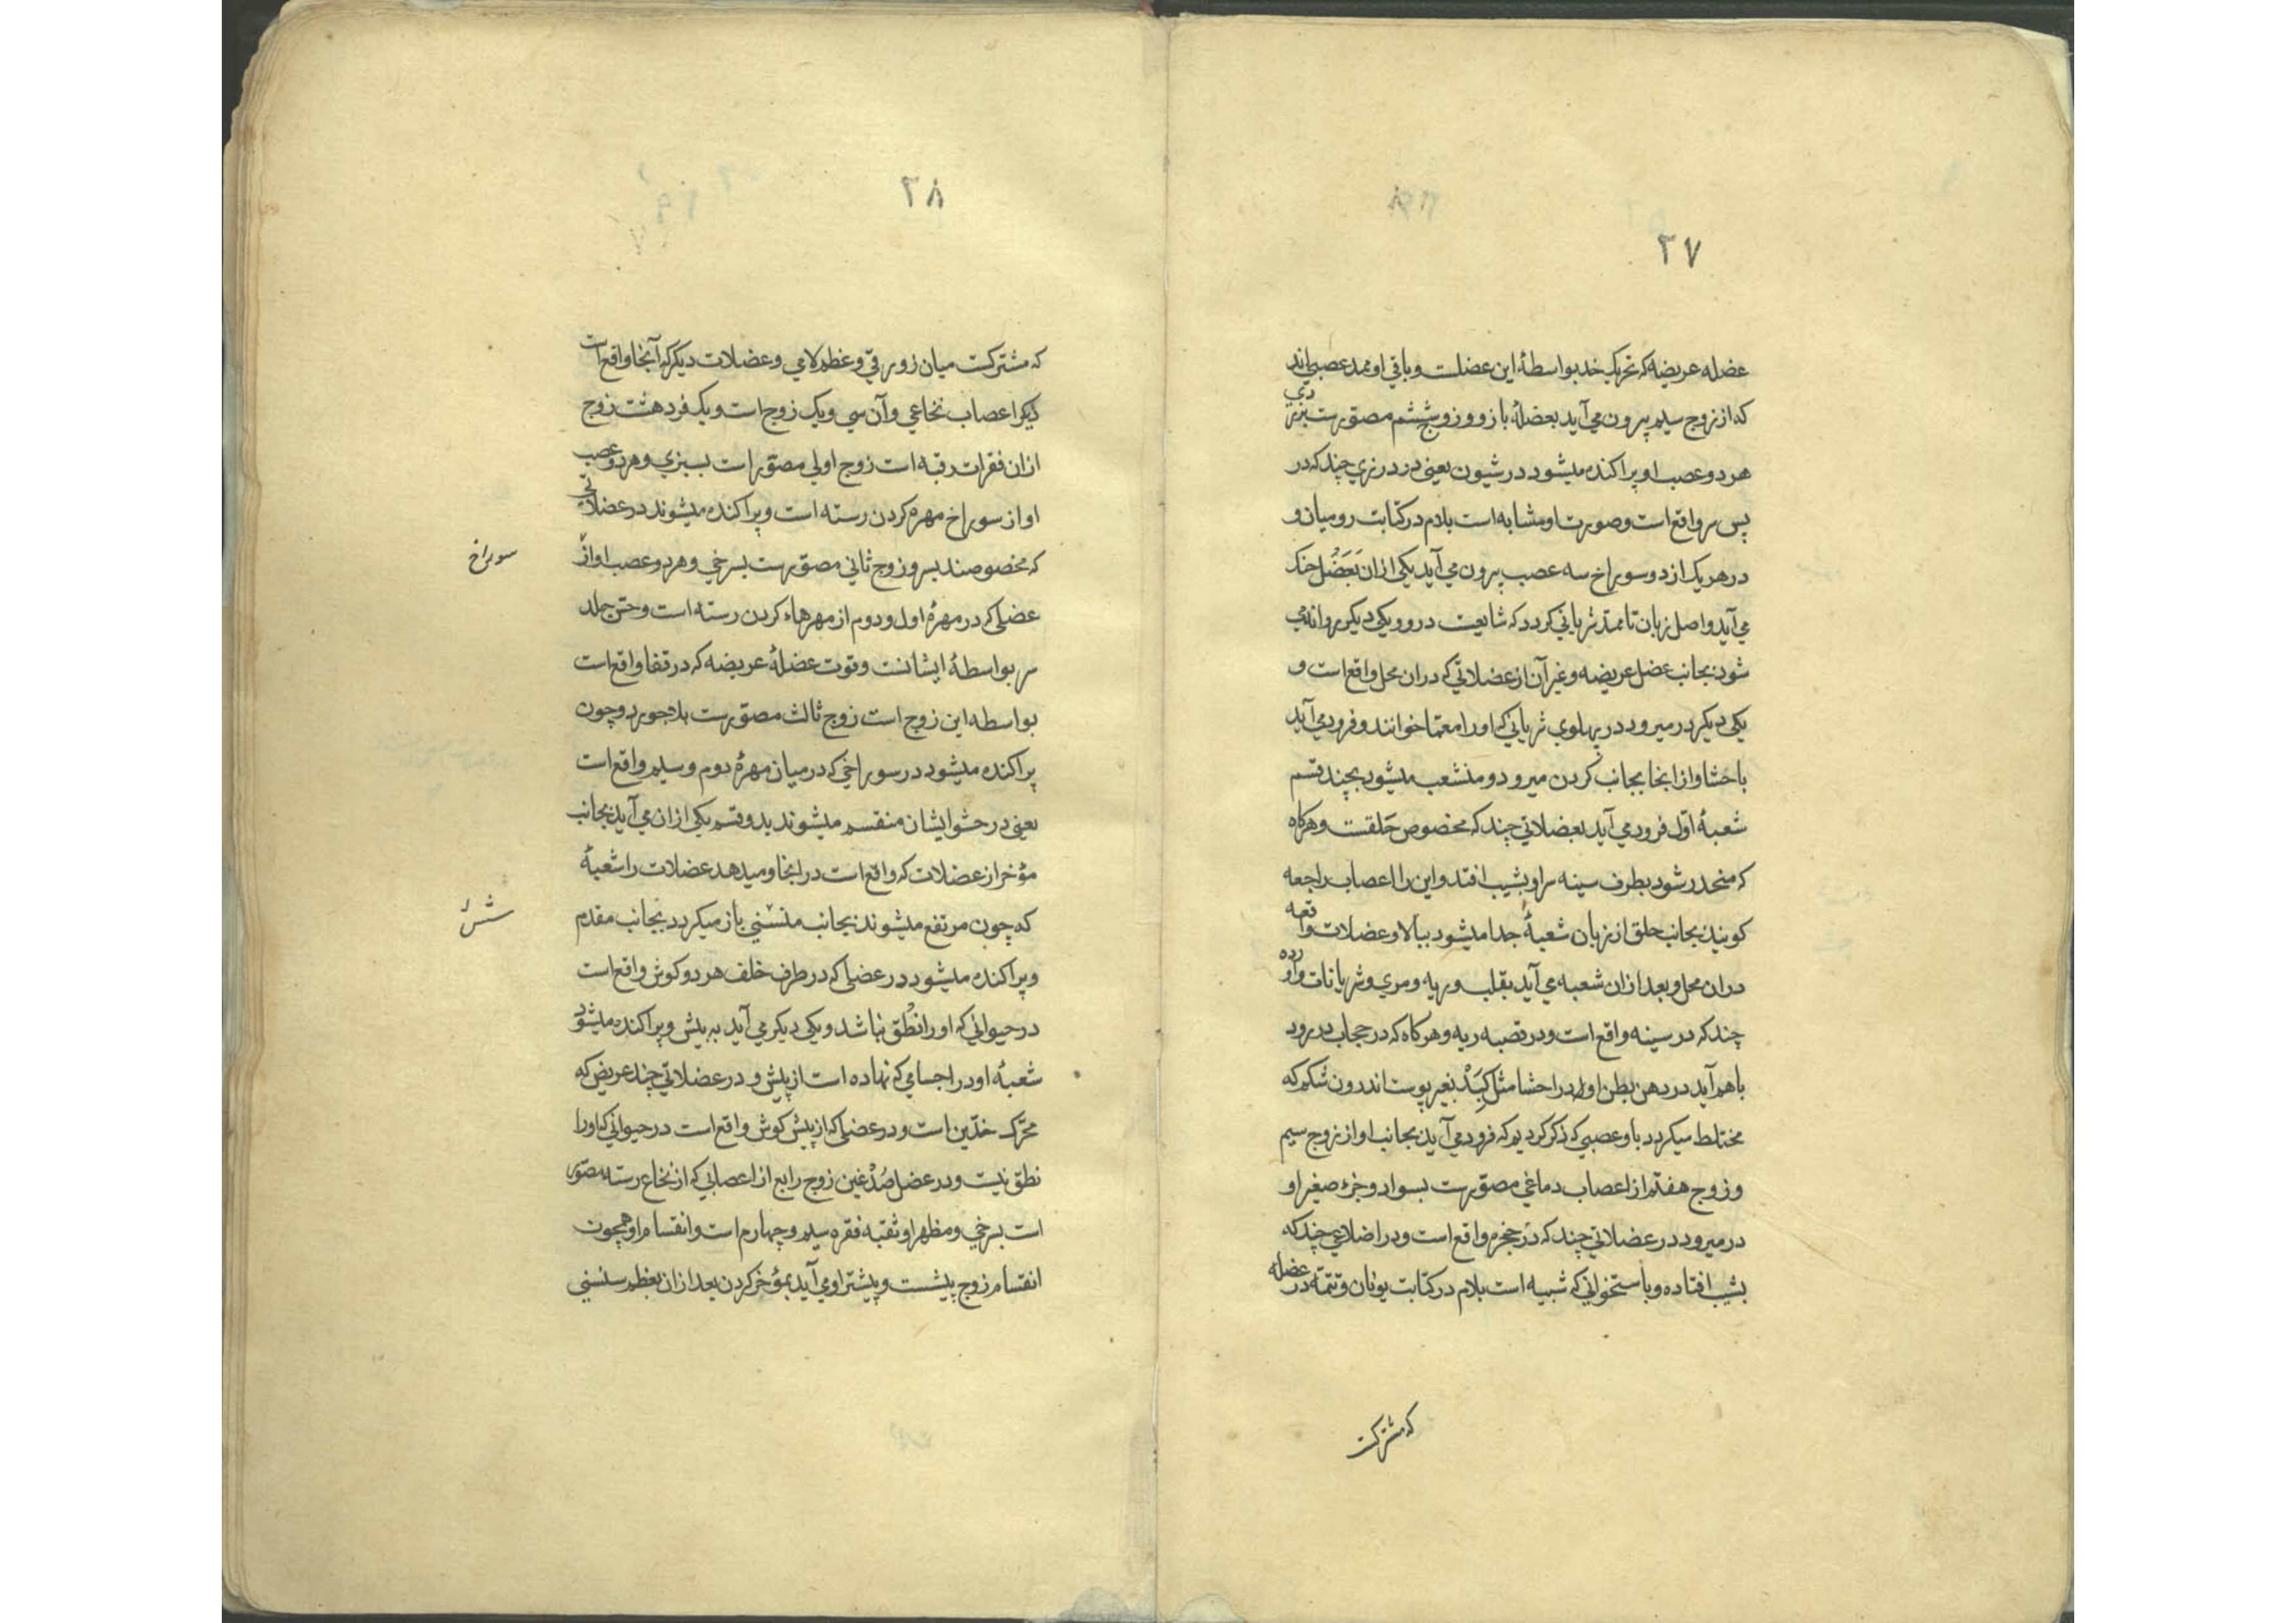 ۲۷
عضله عریضه که تحریک خد بواسطهٔ این عضلست و باقی او ممد عصبی اند
که از زوج سیم بیرون می آید بعضلهٔ بازو و زوج ششم مصوّرست بزردی
هر دو عصب او پراکنده میشود در شیون یعنی در درزی چند که در
پس سر واقع است و صورت او مشابه است بلام در کتابت رومیان و
در هر یک از دو سوراخ سه عصب بیرون می آید یکی ازان بَعَضُل حنک
می آید و اصل زبان تا ممد شریانی کردد که شایعت در وو یکی دیکر روانه می
شود بجانب عضل عریضه و غیر آن از عضلاتی که دران محل واقع است و
یکی دیکر در میرود در پهلوی شریانی که اورا معتما خوانند و فرود می آید
باحشا و از انجا بجانب کردن میرود و منشعب میشود بچند قسم
شعبهٔ اوّل فرود می آید بعضلاتی چند که مخصوص حَلقست و هرکاه
که منحدر شود بطرف سینه سر او بشیب افتد و این را اعصاب راجعه
کویند بجانب حلق از زبان شعبهٔ جدا میشود ببالا و عضلات واقعه
دران محل و بعد ازان شعبه می آید بقلب و ریه و مری و شریانات وارده
چند که در سینه واقع است و در قصبه ریه و هرکاه که در حجاب در رود
باهم آید در دهن بطن او در احشا مثل کَبِدْ بغیر پوست اندرون شکم که
مختلط میکردد باو عصبی که ذکر کردیم که فرود می آید بجانب او از زوج سیم
و زوج هفتم از اعصاب دماغی مصوّرست بسواد و جزء صغیر او
در میرود در عضلاتی چند که در حنجره واقع است و در اضلاعی چند که
بشیب افتاده و باستخوانی که شبیه است بلام در کتابت یونان و تتمّه در عضله
که مشترکست
۲۸
که مشترکست میان زورقی و عظم لامی و عضلات دیکر که آنجا واقع است
دیکر اعصاب نخاعی و آن سی و یک زوج است و یک فرد هشت زوج
ازان فقرات رقبه است زوج اولی مصوّر است بسبزی و هر دو عصب
او از سوراخ مهره کردن رسته است و پراکنده میشوند در عضلاتی
که مخصوصند بسر و زوج ثانی مصوّرست بسرخی و هر دو عصب او از
سوراخ
عضلی که در مهرهٔ اول و دوم از مهرهاء کردن رسته است و حسّ جلد
سر بواسطهٔ ایشانست و قوت عضلهٔ عریضه که در قفا واقع است
بواسطه این زوج است زوج ثالث مصوّرست بلاجورد و چون
پراکنده میشود در سوراخی که در میان مهرهٔ دوم و سیم واقع است
یعنی در حشو ایشان منقسم میشوند بدو قسم یکی ازان می آید بجانب
مؤخر از عضلات که واقع است در انجا و میدهد عضلات را شعبهٔ
که چون مرتفع میشوند بجانب منسنی باز میکردد بجانب مقدم
و پراکنده میشود در عضلی که در طرف خلف هر دو کوش واقع است
در حیوانی که او را نطْق نباشد و یکی دیکر می آید به پیش و پراکنده میشود
شعبهٔ او در اجسامی که نهاده است از پیش و در عضلاتی چند عریض که
محرّک خدّین است و در عضلی که از پیش کوش واقع است در حیوانی که اورا
نطق نیست و در عضل صُدْغین زوج رابع از اعصابی که از نخاع رسته مصوّر
است بسرخی و مظهر او ثقبه فقره سیم و چهارم است و انقسام او همچون
انقسام زوج پیشست و پیشتر او می آید بمؤخر کردن بعد ازان بعظم سنسنی